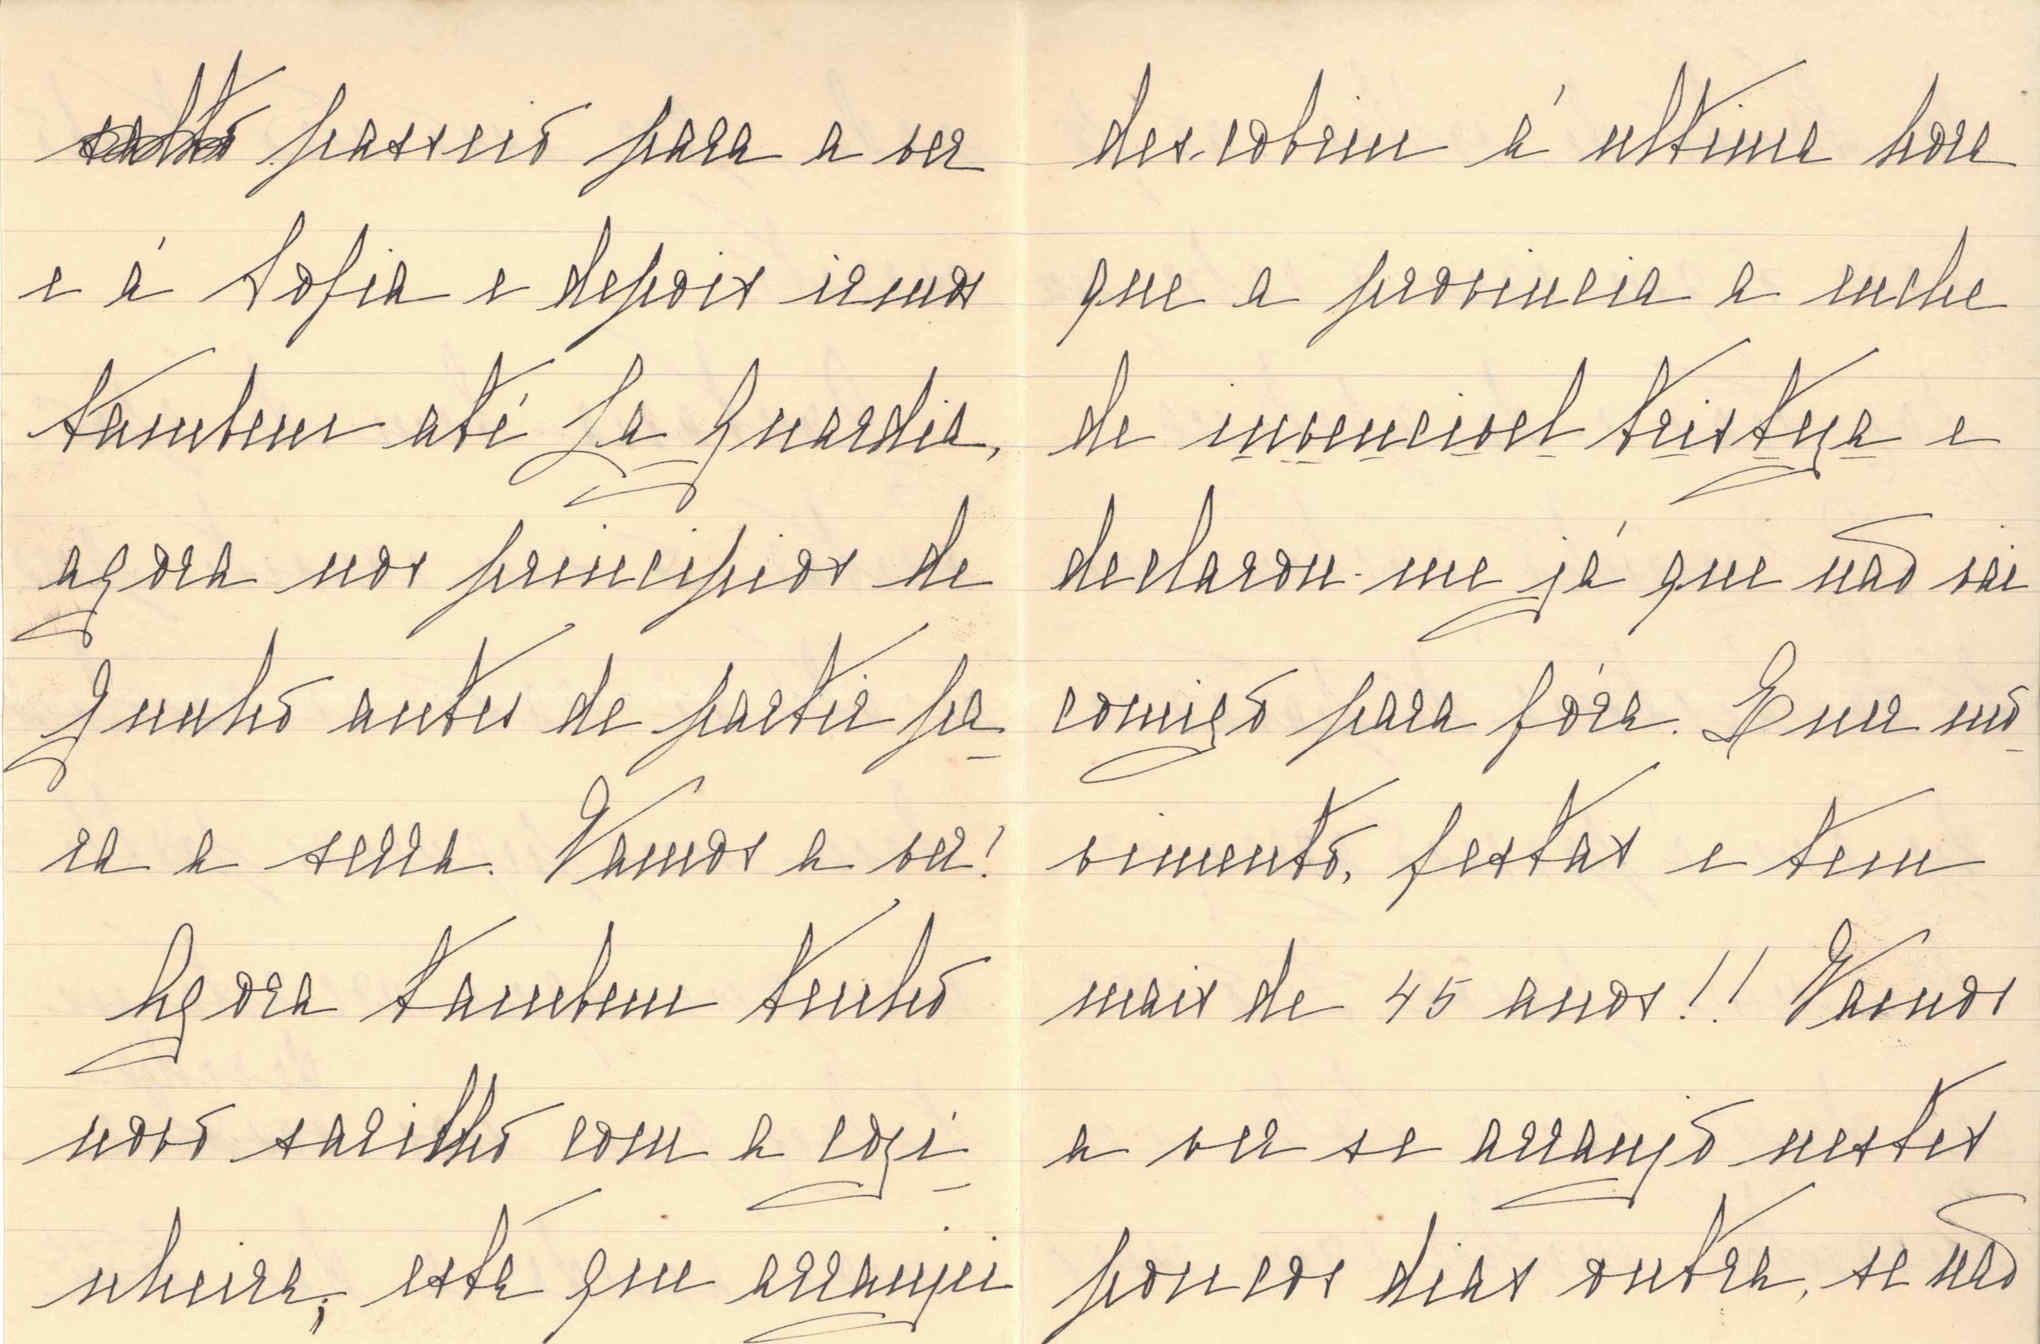 passeio para a ver
e á Sofia e depois irmos
tambem até La Guardia,
agora nos principios de
Junho antes de partir pa
ra a serra. Vamos a ver!
Agora tambem tenho
novo sarilho com a cozi
nheira; esta que arranjei
des-cobriu á ultima hora
que a provincia a enche
de invencivel tristeza e
declarou-me já que não vai
comigo para fóra. Quer mo
vimento, festas e tem
mais de 45 anos!! Vamos
a ver se arranjo nestes
poucos dias outra, se não